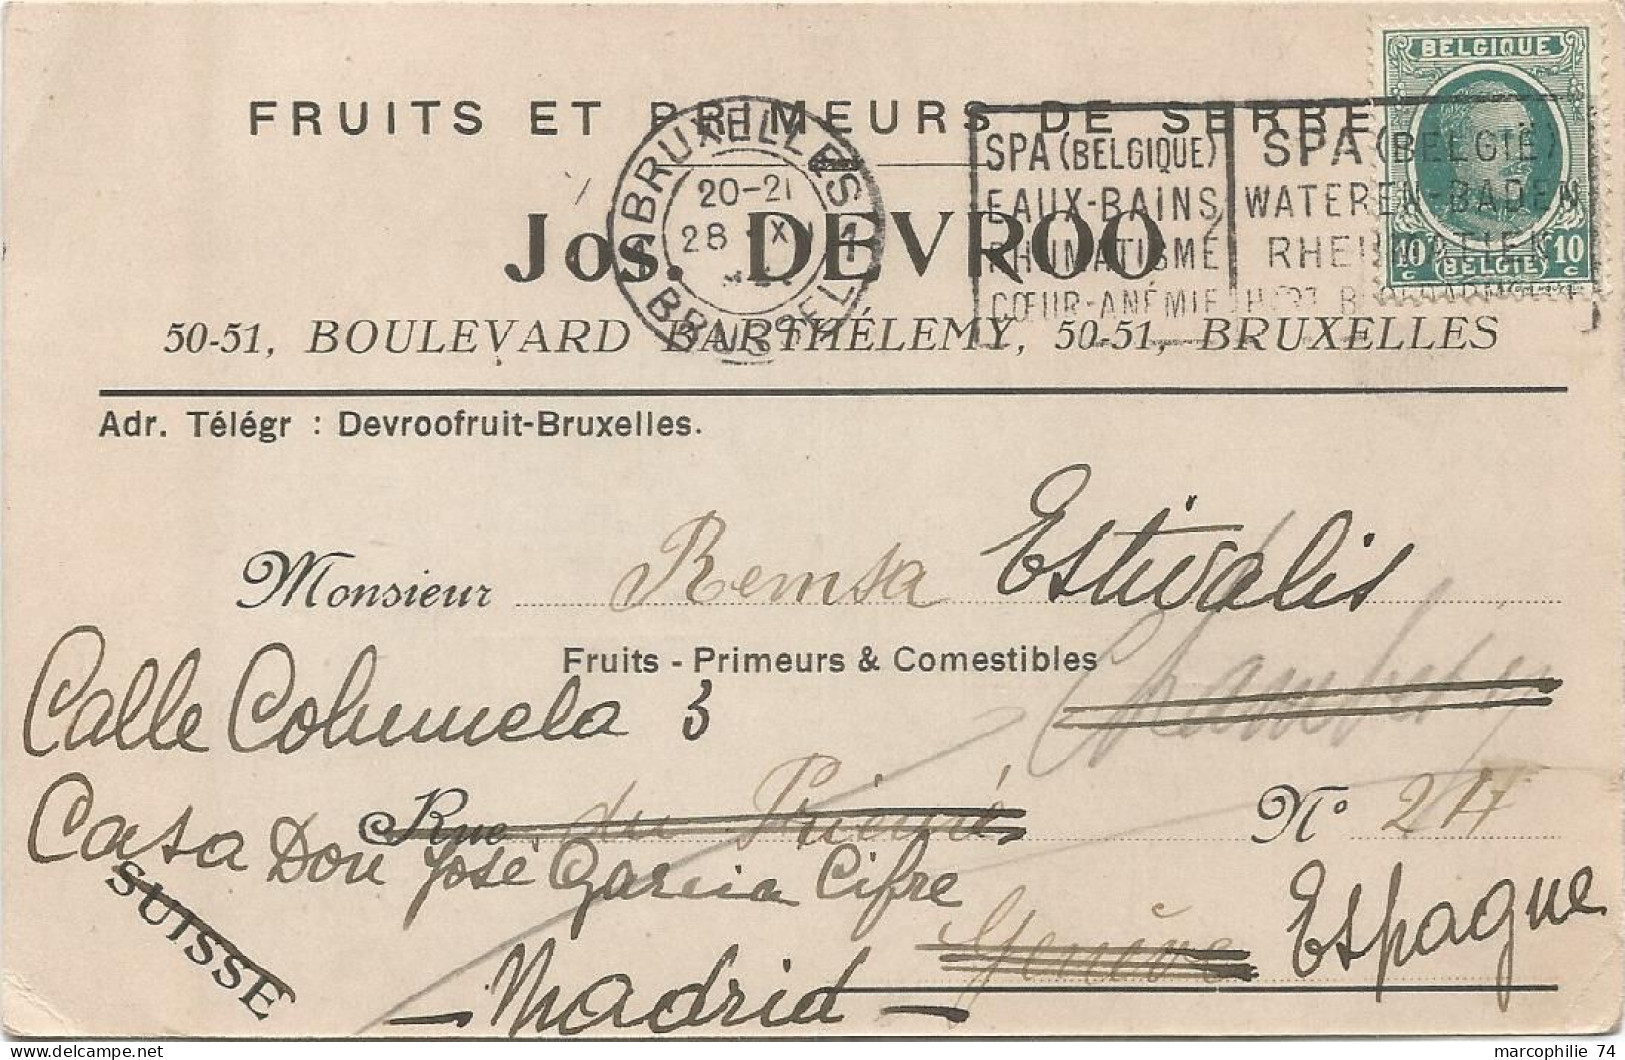 BELGIQUE
10 c 10 c
BELGIË
FRUITS ET PRIMEURS DE SERRE
BRUXELLES 1
20-21
28 XI
BRUSSEL
SPA (BELGIQUE)
EAUX-BAINS
RHUMATISME
CŒUR-ANÉMIE
SPA (BELGIË)
WATEREN-BADEN
Jos. DEVROO
50-51, BOULEVARD BARTHÉLEMY, 50-51, BRUXELLES
Adr. Télégr : Devroofruit-Bruxelles.
Monsieur Remsa Estivalis
Fruits - Primeurs & Comestibles
Chambéry
Calle Columela 3
Rue du Prieuré N°
Casa Don José Garcia Cifre
SUISSE
Genève
Espagne
- Madrid -
marcophilie 74